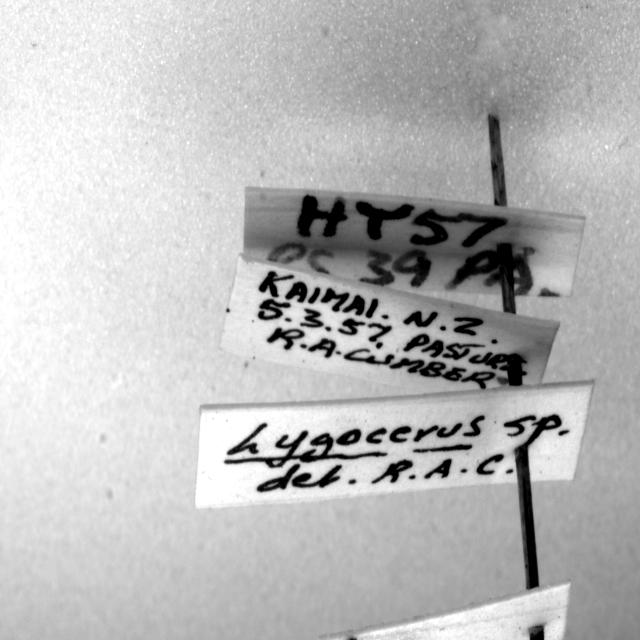 HTS7
39
KAIMAI. N.Z.
5.3.57 PASTURE
R.A.CUMBER
Lygocerus sp.
det. R.A.C.